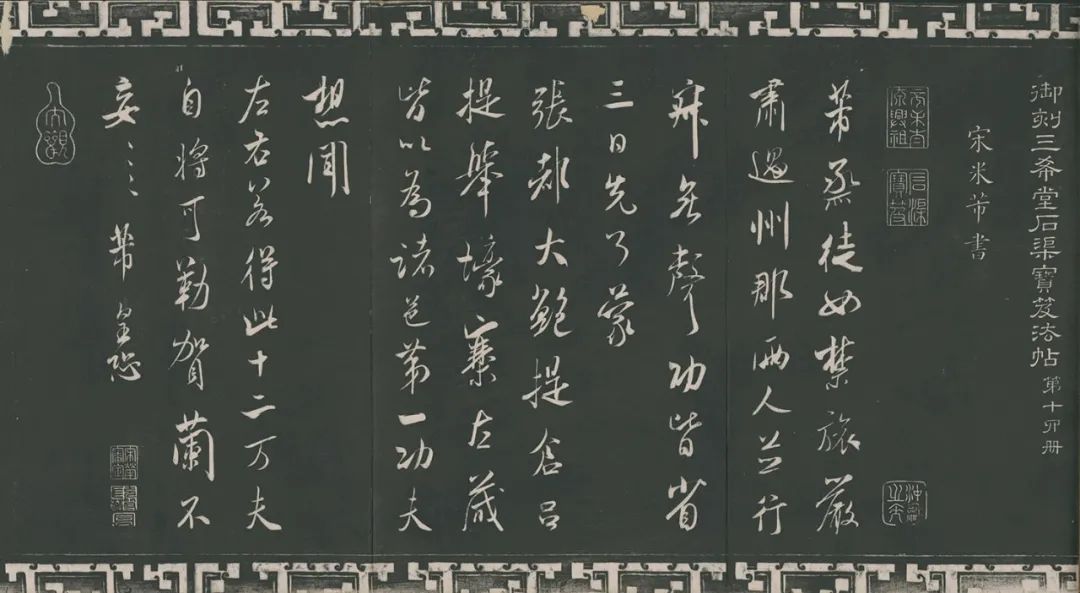 御刻三希堂石渠寶笈法帖 第十四冊
宋米芾書
芾烝徒如禁旅嚴
肅過州郡兩人並行
寂無聲功皆省
三日先了蒙
張都大鮑提倉呂
提舉壕寨左藏
皆以為諸邑第一功夫
想聞
左右若得此十二万夫
自將可勒賀蘭不
妄〻〻芾皇恐
石渠寶笈
大觀